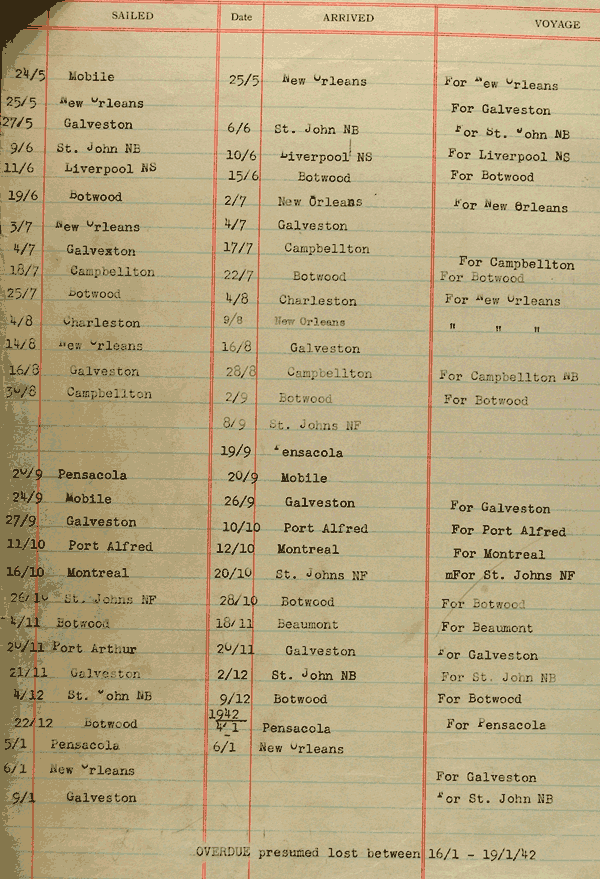 SAILED Date ARRIVED VOYAGE
24/5 Mobile 25/5 New Orleans For New Orleans
25/5 New Orleans For Galveston
27/5 Galveston 6/6 St. John NB For St. John NB
9/6 St. John NB 10/6 Liverpool NS For Liverpool NS
11/6 Liverpool NS 15/6 Botwood For Botwood
19/6 Botwood 2/7 New Orleans For New Orleans
3/7 New Orleans 4/7 Galveston
4/7 Galvexton 17/7 Campbellton For Campbellton
18/7 Campbellton 22/7 Botwood For Botwood
25/7 Botwood 4/8 Charleston For New Orleans
4/8 Charleston 9/8 New Orleans " " "
14/8 New Orleans 16/8 Galveston
16/8 Galveston 28/8 Campbellton For Campbellton NB
30/8 Campbellton 2/9 Botwood For Botwood
8/9 St. Johns NF
19/9 Pensacola
20/9 Pensacola 20/9 Mobile
24/9 Mobile 26/9 Galveston For Galveston
27/9 Galveston 10/10 Port Alfred For Port Alfred
11/10 Port Alfred 12/10 Montreal For Montreal
16/10 Montreal 20/10 St. Johns NF mFor St. Johns NF
26/10 St. Johns NF 28/10 Botwood For Botwood
4/11 Botwood 18/11 Beaumont For Beaumont
20/11 Port Arthur 20/11 Galveston For Galveston
21/11 Galveston 2/12 St. John NB For St. John NB
4/12 St. John NB 9/12 Botwood For Botwood
1942
22/12 Botwood 4/1 Pensacola For Pensacola
5/1 Pensacola 6/1 New Orleans
6/1 New Orleans For Galveston
9/1 Galveston For St. John NB
OVERDUE presumed lost between 16/1 - 19/1/42